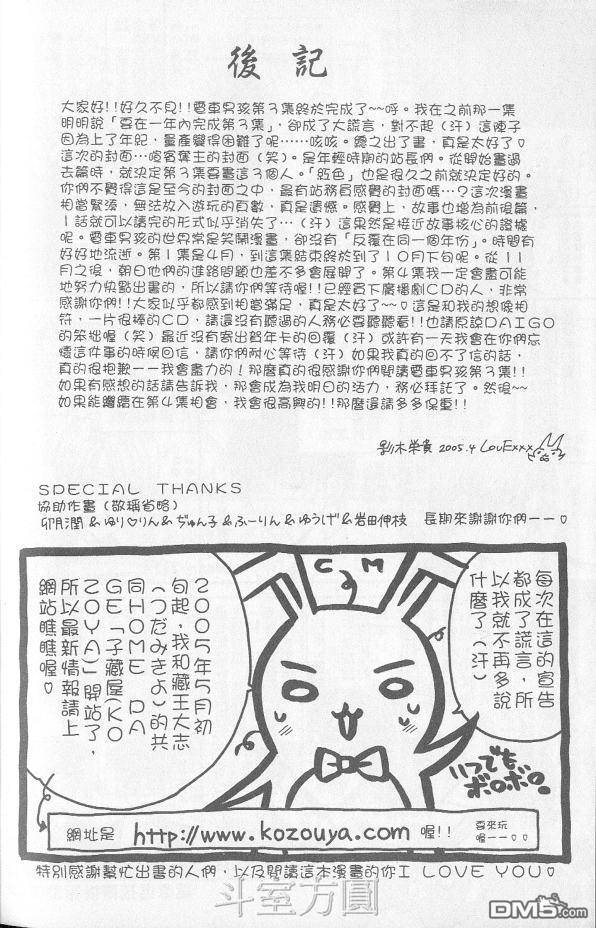 後記
大家好!!好久不見!!電車男孩第3集終於完成了~~呼。我在之前那一集
明明說「要在一年內完成第3集」,卻成了大謊言,對不起(汗)這陣子
因為上了年紀,量產變得困難了呢……咳咳。總之出了書,真是太好了♡
這次的封面…噹賓奪王的封面(笑)。是年輕時期的站長們。從開始畫過
去篇時,就決定第3集要畫這3個人。「紅色」也是很久之前就決定好的。
你們不覺得這是至今的封面之中,最有站務員感覺的封面嗎…?這次漫畫
相當緊湊,無法放入遊玩的頁數,真是遺憾。感覺上,故事也增為前後篇,
1話就可以講完的形式似乎消失了…(汗)這果然是接近故事核心的證據
呢。電車男孩的世界常是笑鬧漫畫,卻沒有「反覆在同一個年份」。時間有
好好地流逝。第1集是4月,到這集結束終於到了10月下旬呢。從11
月之後,朝日他們的進路問題也差不多會展開了。第4集我一定會盡可能
地努力快點出書的,所以請你們等待喔!!已經買下廣播劇CD的人,非常
感謝你們!!大家似乎都感到相當滿足,真是太好了~~♡這是和我的想像相
符,一片很棒的CD,請還沒有聽過的人務必要聽聽看!!也請原諒DAIGO
的笨拙喔(笑)最近沒有寄出賀年卡的回覆(汗)或許有一天我會在你們忘
懷這件事的時候回信,請你們耐心等待(汗)如果我真的回不了信的話,
真的很抱歉——我會盡力的!那麼真的很感謝你們閱讀電車男孩第3集!!
如果有感想的話請告訴我,那會成為我明日的活力,務必拜託了。然後~~
如果能繼續在第4集相會,我會很高興的!!那麼還請多多保重!!
影木栄貴 2005.4 LovExxx
SPECIAL THANKS
協助作畫(敬稱省略)
卯月潤&ゆり♡りん&ぢゅん子&ふーりん&ゆうげ&岩田伸枝 長期來謝謝你們——♡
每次在這的宣告
都成了謊言,所
以我就不再多說
什麼了(汗)
CM
2005年5月初
旬起,我和藏王大志
(つだみきよ)的共
同HOME PA
GE「子藏屋(KO
ZOUYA)開站了,
所以最新情報請上
網站瞧瞧喔♡
いつでも
ボロボロ。
網址是 http://www.kozouya.com 喔!! 要來玩
喔——♡♡
特別感謝幫忙出書的人們,以及閱讀這本漫畫的你I LOVE YOU♡
斗室方圓
DM5.com